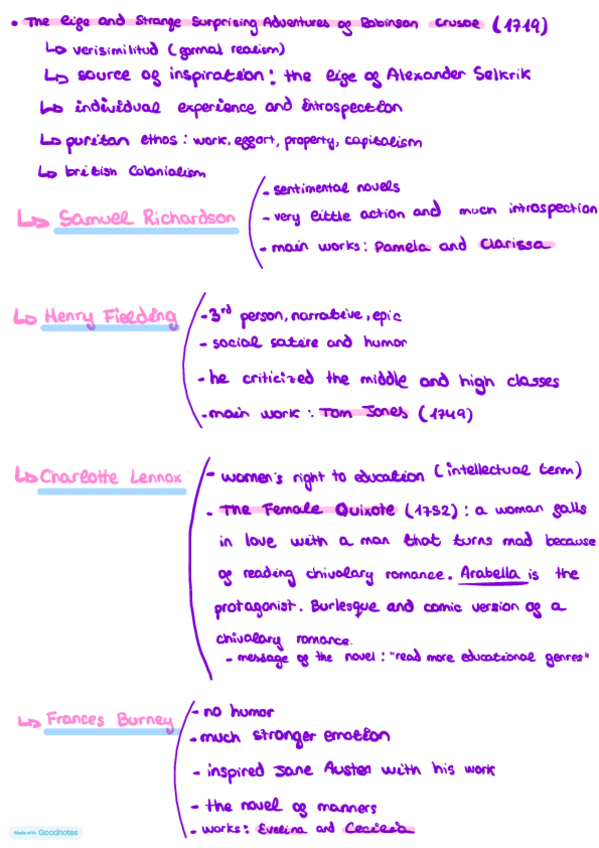 • The life and Strange Surprising Adventures of Robinson Crusoe (1719)
↳ verisimilitud (formal realism)
↳ source of inspiration: the life of Alexander Selkrik
↳ individual experience and introspection
↳ puritan ethos: work, effort, property, capitalism
↳ british Colonialism
↳ Samuel Richardson
- sentimental novels
- very little action and much introspection
- main works: Pamela and Clarissa
↳ Henry Fielding
- 3rd person, narrative, epic
- social satire and humor
- he criticized the middle and high classes
- main work: Tom Jones (1749)
↳ Charlotte Lennox
- women's right to education (intellectual term)
- The Female Quixote (1752): a woman falls
in love with a man that turns mad because
of reading chivalary romance. Arabella is the
protagonist. Burlesque and comic version of a
chivalary romance.
- message of the novel: "read more educational genres"
↳ Frances Burney
- no humor
- much stronger emotion
- inspired Jane Austen with his work
- the novel of manners
- works: Evelina and Cecilia
Made with Goodnotes